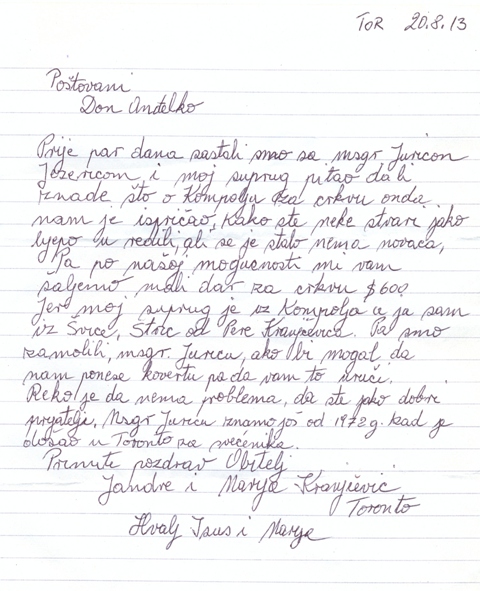 TOR 20.8.13
Poštovani
Don Anđelko
Prije par dana sastali smo sa msgr Juricon
Jezericom i moj suprug pitao da li
iznade što o Kompolju za crkvu onda
nam je ispričao, kako ste neke stvari jako
ljepo u redili, ali se je stalo nema novaca,
Pa po našoj mogučnosti mi vam
saljemo mali dar za crkvu $600
Jer moj suprug je iz Kompolja a ja sam
iz Švice, Stric od Pere Kranjčevića. Pa smo
zamolili, msgr. Juricu, ako bi mogal da
nam ponese kovertu pa da vam to uruči.
Reko je da nema problema, da ste jako dobri
prijatelji, Msgr Juricu znamo još od 1972 g. kad je
došao u Toronto za svećenika.
Primite pozdrav Obitelj
Jandre i Marija Kranjčević
Toronto
Hvalj Isus i Marija